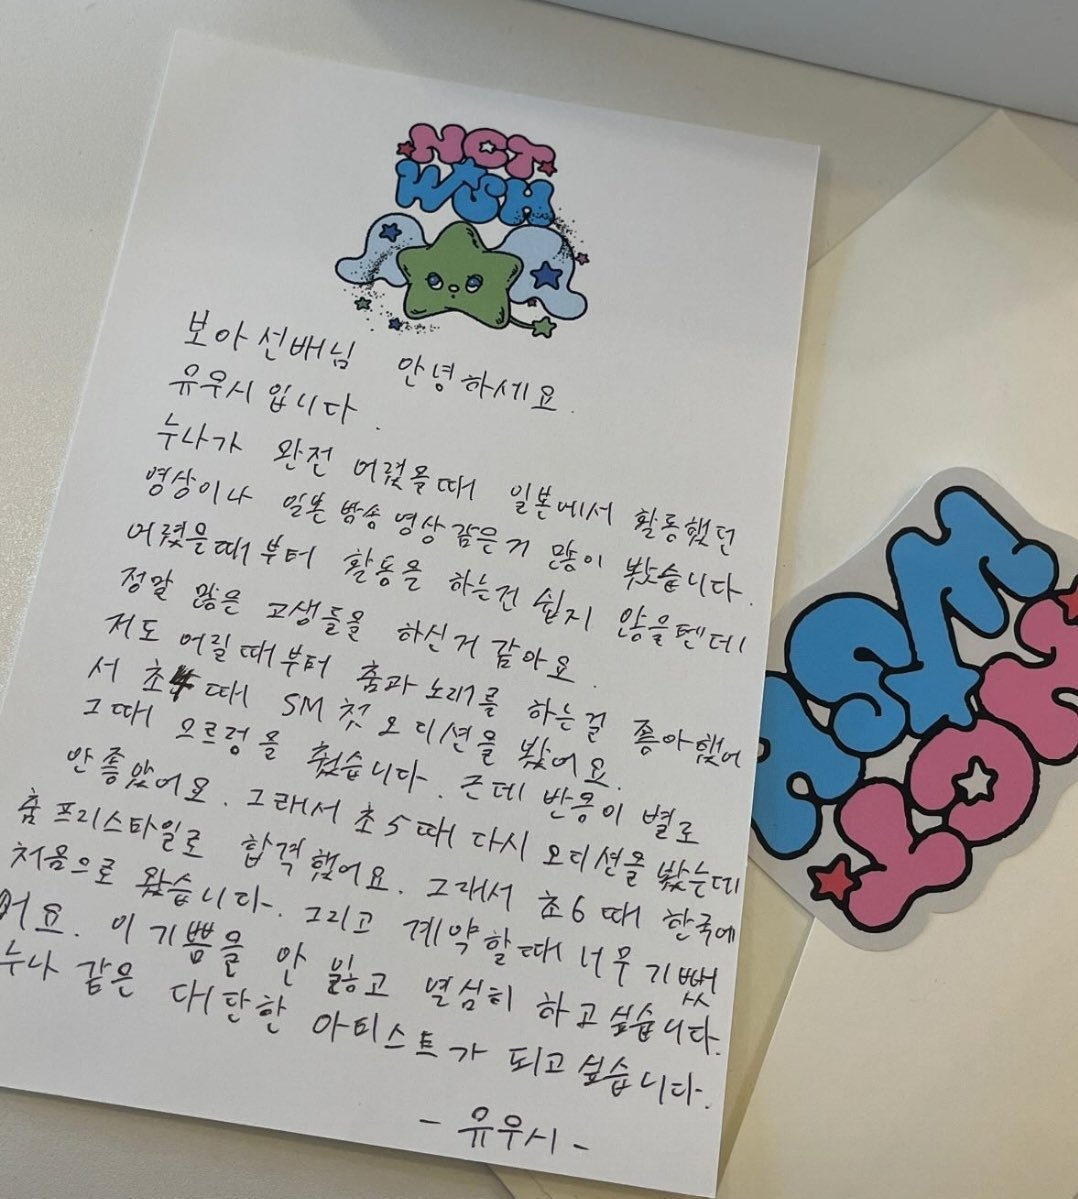 NCT
WISH
보아선배님 안녕하세요.
유우시입니다.
누나가 완전 어렸을때 일본에서 활동했던
영상이나 일본 방송 영상 같은거 많이 봤습니다.
어렸을때부터 활동을 하는건 쉽지 않을텐데
정말 많은 고생들을 하신거 같아요.
저도 어릴때부터 춤과 노래를 하는걸 좋아했어
서 초4 때 SM 첫 오디션을 봤어요.
그때 으르렁을 췄습니다. 근데 반응이 별로
안 좋았어요. 그래서 초5 때 다시 오디션을 봤는데
춤 프리스타일로 합격했어요. 그래서 초6 때 한국에
처음으로 왔습니다. 그리고 계약할때 너무 기뻤
어요. 이 기쁨을 안 잃고 열심히 하고 싶습니다.
누나 같은 대단한 아티스트가 되고 싶습니다.
- 유우시 -
NCT
WISH